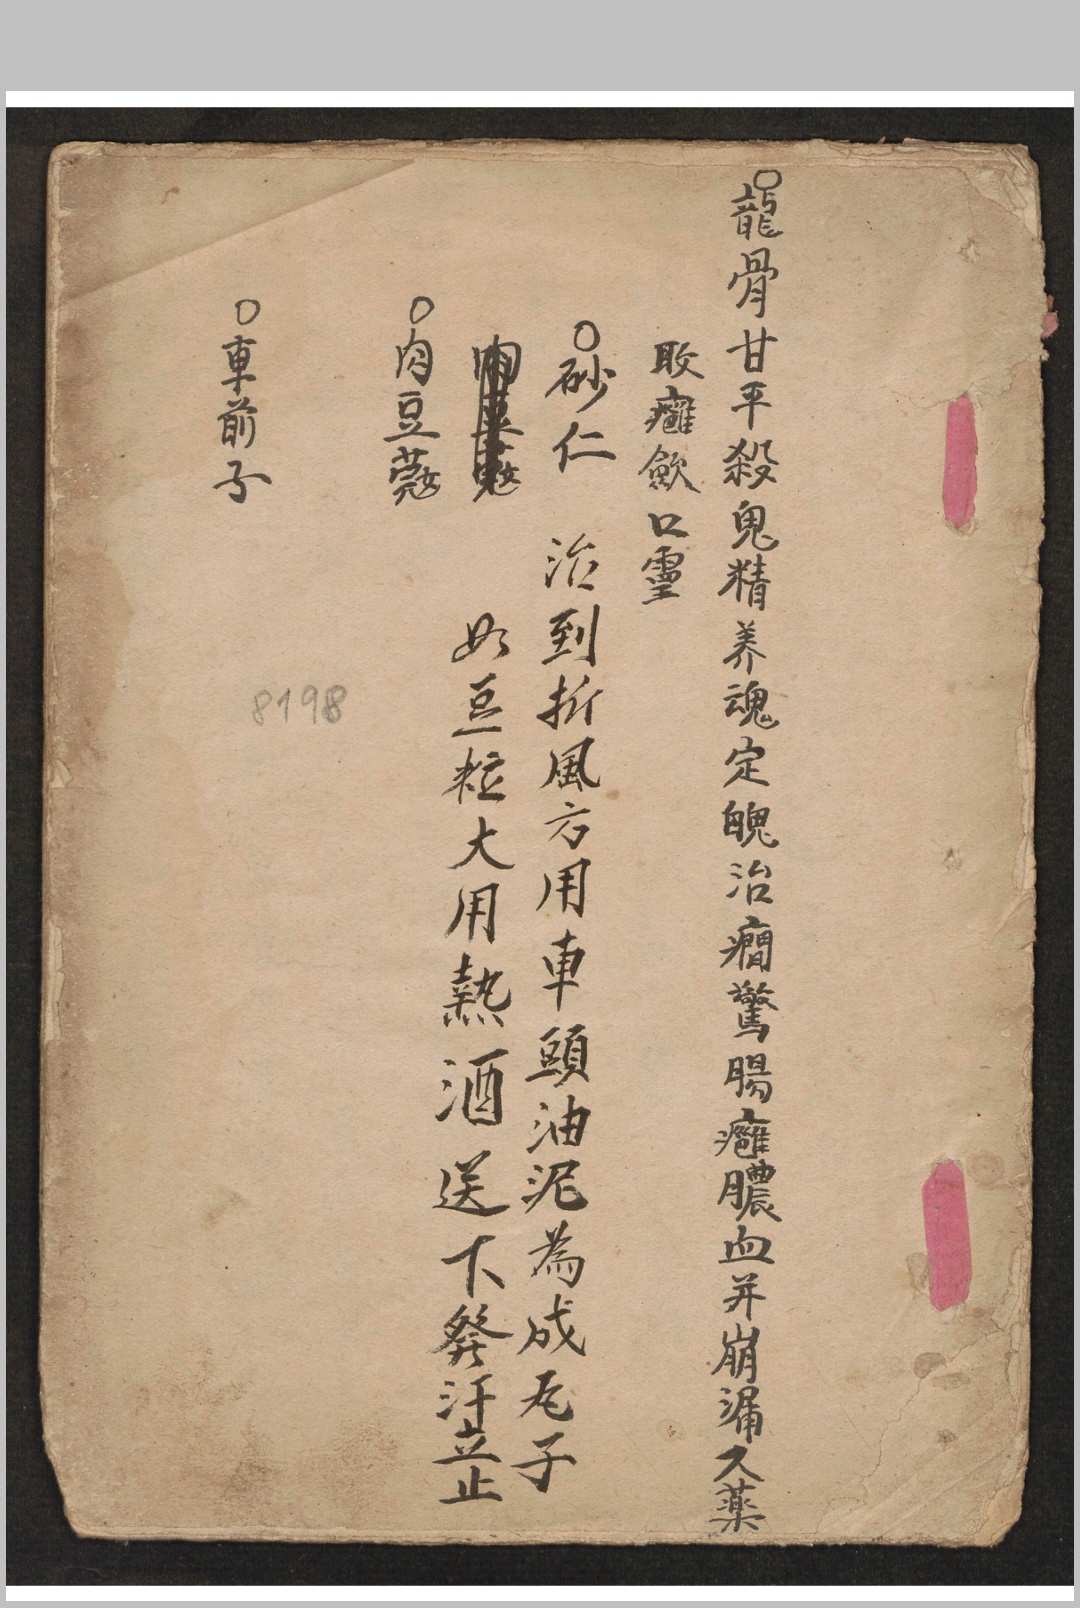 ○龍骨甘平殺鬼精养魂定魄治癇驚腸癰膿血并崩漏久藥
敗癰歛口靈
○砂仁
治到折風方用車頭油泥為成丸子
如豆粒大用熱酒送下發汗立止
○肉豆蔻
○車前子
8198